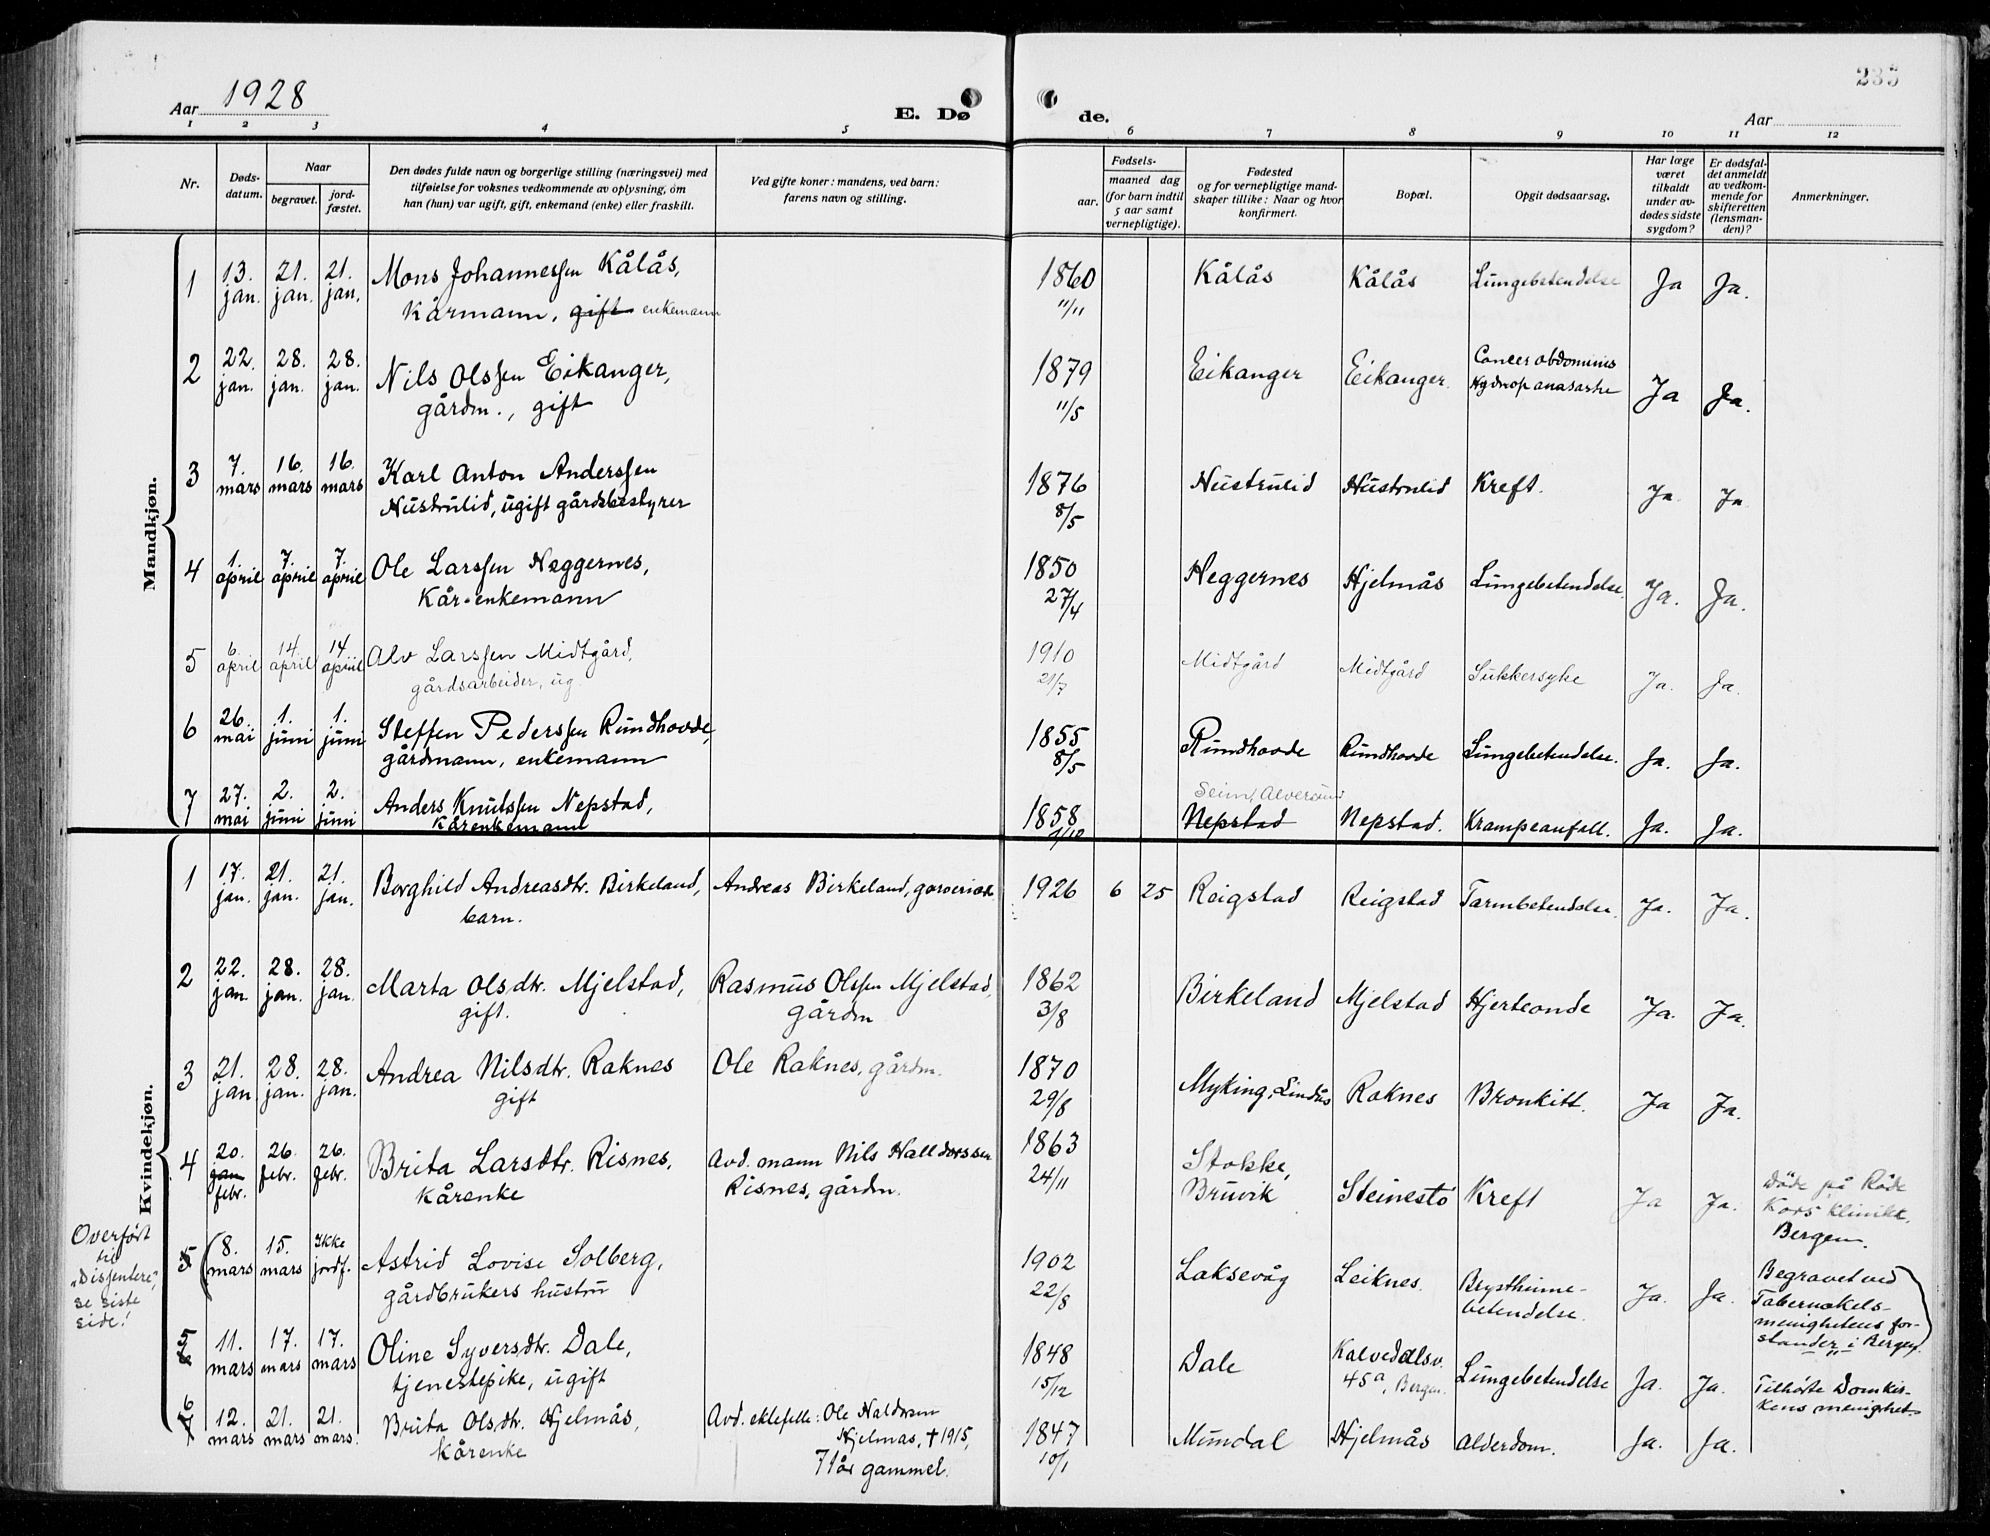 235
Aar 1928
E. Dø
de.
Aar
1 2 3 4 5 6 7 8 9 10 11 12
Nr.
Døds-
datum.
Naar
begravet.
jord-
fæstet.
Den dødes fulde navn og borgerlige stilling (næringsvei) med
tilføielse for voksnes vedkommende av oplysning, om
han (hun) var ugift, gift, enkemand (enke) eller fraskilt.
Ved gifte koner: mandens, ved barn:
farens navn og stilling.
Fødsels-
aar.
maaned dag
(for barn indtil
5 aar samt
vernepligtige).
Fødested
og for vernepligtige mand-
skaper tillike: Naar og hvor
konfirmert.
Bopæl.
Opgit dødsaarsag.
Har læge
været
tilkaldt
under av-
dødes sidste
sygdom?
Er dødsfal-
det anmeldt
av vedkom-
mende for
skifteretten
(lensman-
den)?
Anmerkninger.
Mandkjøn.
1 13. jan. 21. jan. 21. jan. Mons Johannessen Kålås, 1860 Kålås Kålås Lungebetendelse Ja Ja.
Kårmann, gift enkemann 11/11
2 22. jan. 28. jan. 28. jan. Nils Olssen Eikanger, 1879 Eikanger Eikanger. Cancer abdominis Ja Ja.
gårdm., gift 11/5 Hydrop anasarke
3 7. mars 16. mars 16. mars Karl Anton Anderssen 1876 Hustrulid Hustrulid Kreft. Ja. Ja
Hustrulid, ugift gårdsbestyrer 8/5
4 1. april 7. april 7. april Ole Larssen Heggernes, 1850 Heggernes Hjelmås Lungebetendelse. Ja. Ja.
Kår-enkemann 27/4
5 6. april 14. april 14. april Alv Larssen Midtgård, 1910 Midtgård Midtgård Sukkersyke Ja. Ja.
gårdsarbeider, ug. 21/7
6 26. mai 1. juni 1. juni Steffen Pederssen Rundhovde, 1855 Rundhovde Rundhovde Lungebetendelse. Ja. Ja.
gårdmann, enkemann 8/5
7 27. mai 2. juni 2. juni Anders Knutssen Nepstad, 1858 Seim, Alversund
Kårenkemann Nepstad Nepstad. Krampeanfall. Ja. Ja.
Kvindekjøn.
1 17. jan. 21. jan. 21. jan. Borghild Andreasdtr. Birkeland, Andreas Birkeland, 1926 6 25 Reigstad Reigstad Tarmbetendelse. Ja. Ja.
barn.
2 22. jan. 28. jan. 28. jan. Marta Olsdtr. Mjelstad, Rasmus Olssen Mjelstad, 1862 Birkeland Mjelstad Hjerteonde Ja. Ja.
gift. gårdm 3/8
3 21. jan 28. jan. 28. jan. Andrea Nilsdtr. Raknes Ole Raknes, gårdm. 1870 Myking, Lindås Raknes Bronkitt. Ja Ja.
gift 29/8
4 20. jan febr. 26. febr. 26. febr. Brita Larsdtr. Risnes, Avd. mann Nils Halldorssen 1863 Stokke, Steinestö Kreft Ja Ja. Döde på Röde
Kårenke Risnes, gårdm. 24/11 Bruvik Kors klinikk,
Bergen.
Overført
til
"Dissentere",
se siste
side!
5 (8. mars 15. mars Ikke jordf. Astrid Lovise Solberg, 1902 Laksevåg Leiknes. Brysthinne- Ja. Ja. Begravet ved
gårdbrukers hustru 22/8 betendelse. Tabernakels-
menighetens for-
stander i Bergen)
5 6 11. mars 17. mars 17. mars Oline Syversdtr. Dale, 1848 Dale Kalvedalsv. Lungebetendelse Ja. Ja. Tilhörte Domkir-
tjenestepike, ugift 15/12 45a, Bergen. kens menighet.
6 7 12. mars 21. mars 21. mars. Brita Olsdtr. Hjelmås, Avd. ektefelle: Ole Haldorsen 1847 Mundal Hjelmås Alderdom. Ja. Ja.
Kårenke Hjelmås, † 1915, 10/1
71 år gammel.